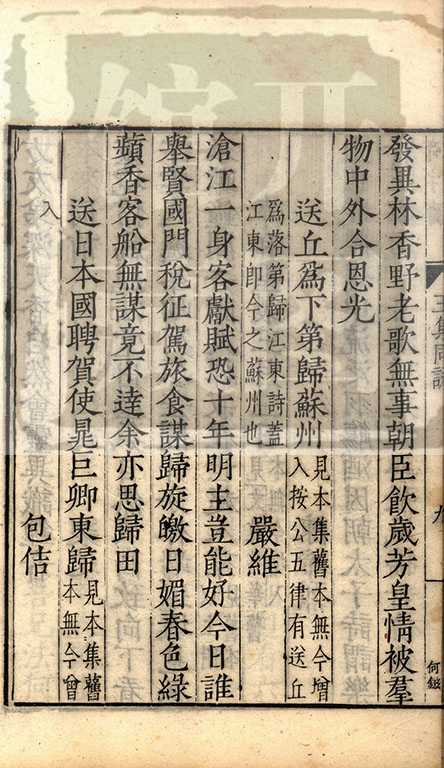 發異林香野老歌無事朝臣飲歲芳皇情被羣
物中外合恩光
送丘爲下第歸蘇州見本集舊本無今增
入按公五律有送丘
爲落第歸江東詩蓋
江東即今之蘇州也
嚴維
滄江一身客獻賦恐十年明主豈能好今日誰
舉賢國門稅征駕旅食謀歸旋皦日媚春色綠
蘋香客船無謀竟不達余亦思歸田
送日本國聘賀使晁巨卿東歸見本集舊
本無今曾
入
包佶
何鈒